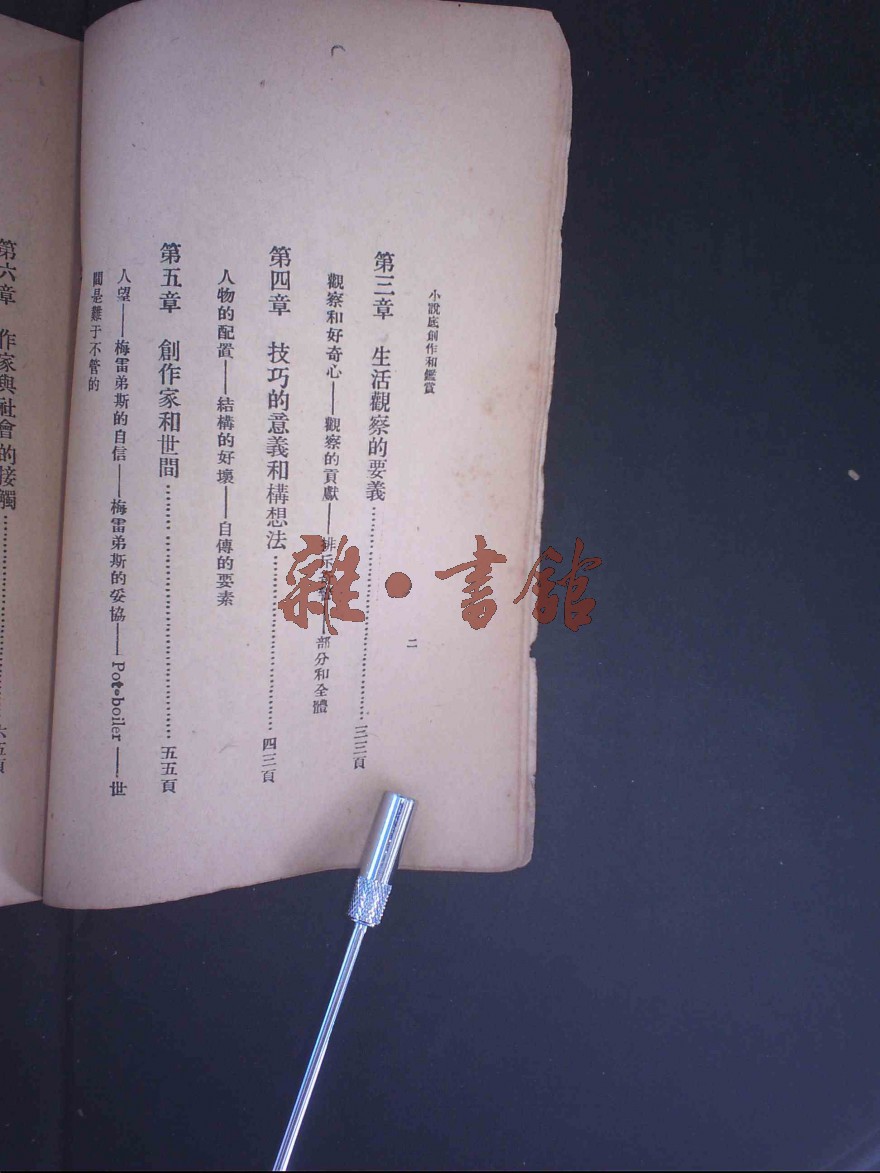 小說底創作和鑑賞
二
第三章 生活觀察的要義………………三三頁
觀察和好奇心——觀察的貢獻——排示——部分和全體
第四章 技巧的意義和構想法………………四三頁
人物的配置——結構的好壞——自傳的要素
第五章 創作家和世間………………五五頁
人望——梅雷弟斯的自信——梅雷弟斯的妥協——Pot-boiler——世
間是難于不管的
第六章 作家與社會的接觸………………六五頁
雜·書館